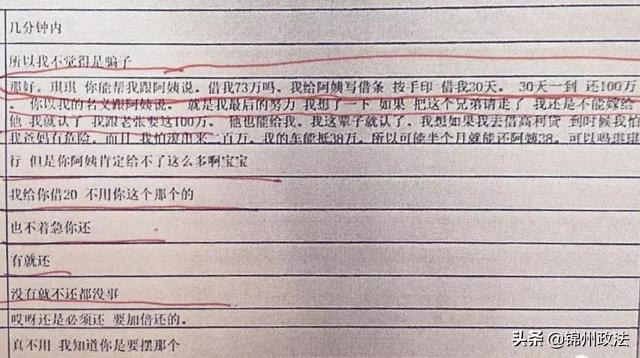 几分钟内
所以我不觉得是骗子
那好。琪琪 你能帮我跟阿姨说。借我73万吗。我给阿姨写借条 按手印 借我30天。 30天一到 还100万
。 你以我的名义跟阿姨说。 就是我最后的努力 我想了一下 如果 把这个兄弟请走了 我还是不能嫁给
他 我就认了 我跟老张要这100万。 他也能给我。我这辈子就认了。我想如果我去借高利贷 到时候我怕
我爸妈有危险。而且 我怕滚出来二百万。我的车能抵38万。所以可能半个月就能还阿姨38。可以吗琪琪
行 但是你阿姨肯定给不了这么多啊宝宝
我给你借20 不用你这个那个的
也不着急你还
有就还
没有就不还都没事
哎呀还是必须还 要加倍还的。
真不用 我知道你是要摆那个
头条 @锦州政法